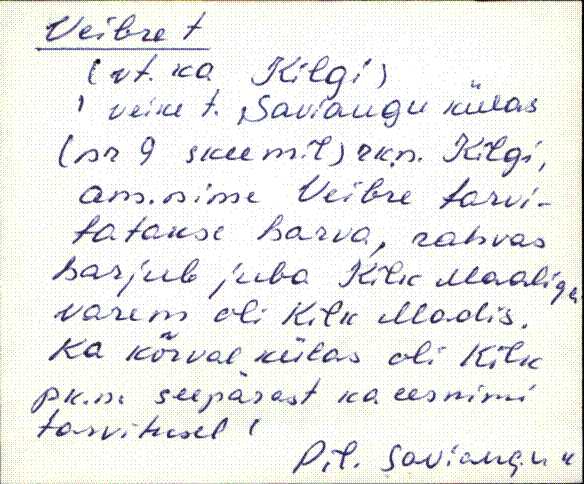 Veibre t
(vt. ka Kilgi)
' veike t. Saviaugu külas
(nr 9 skeemil) rkp. Kilgi,
am. nime Veibre tarvi-
tatakse harva, rahvas
harjub juba Kilk Maaliga
varem oli Kilk Madis.
Ka kõrval külas oli Kilk
pk.n. seepärast ka eesnimi
tarvitusel '
Pil. Saviaugu k